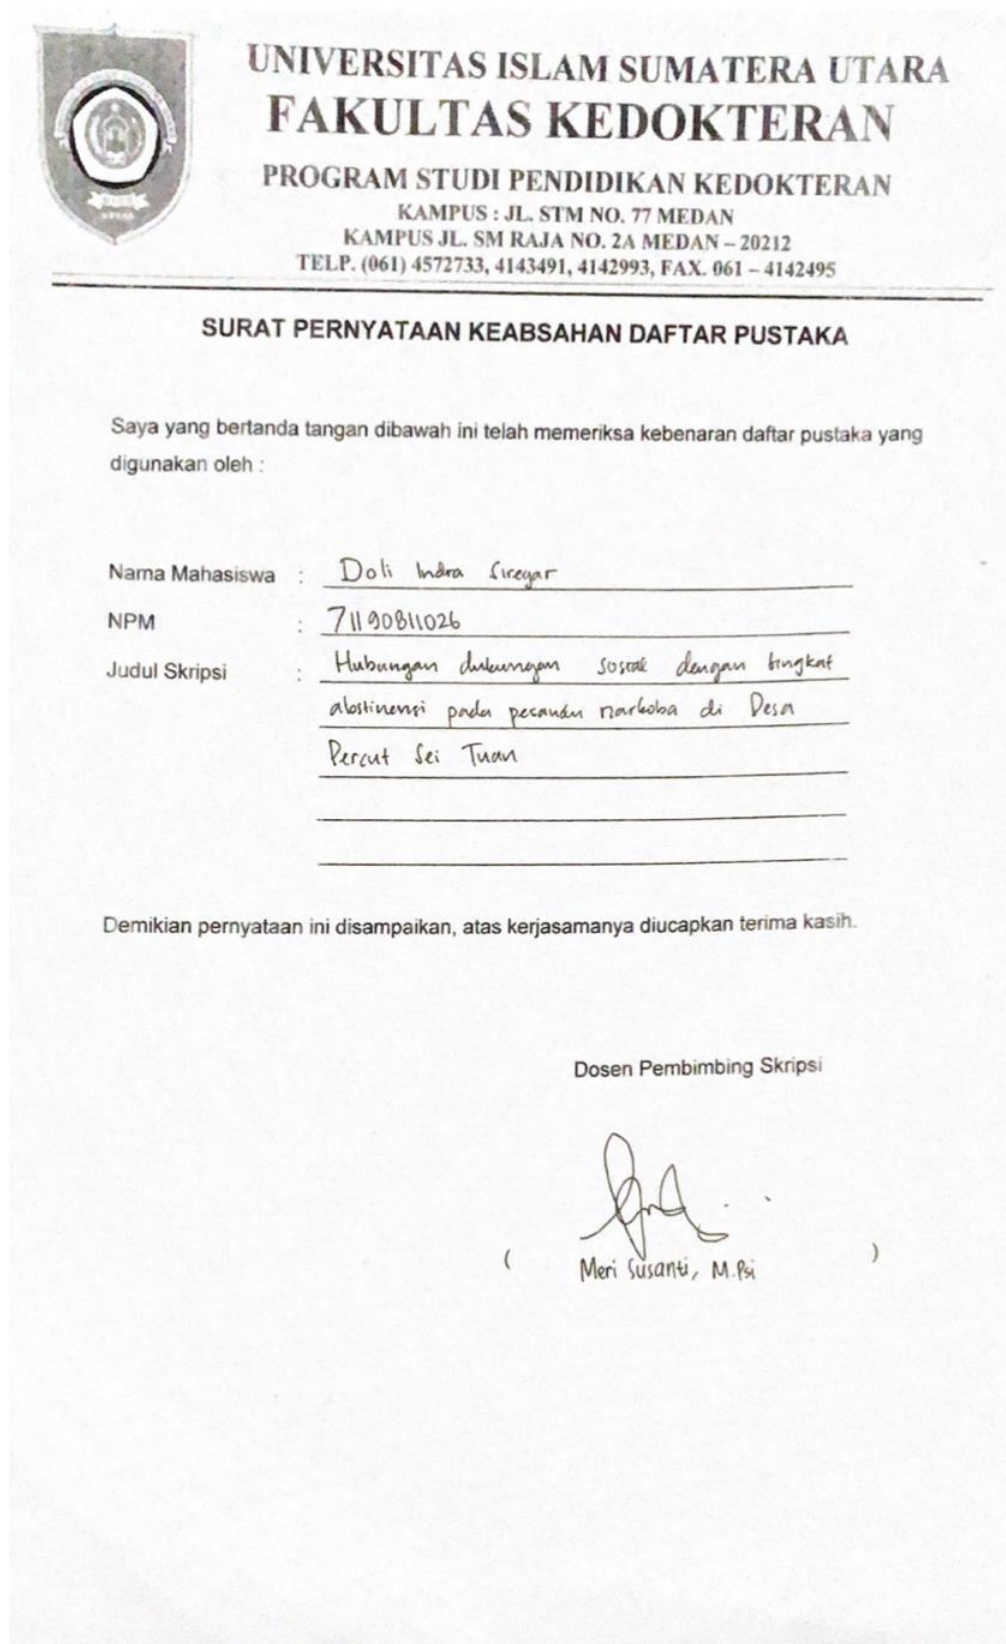 UNIVERSITAS ISLAM SUMATERA UTARA
FAKULTAS KEDOKTERAN
PROGRAM STUDI PENDIDIKAN KEDOKTERAN
KAMPUS : JL. STM NO. 77 MEDAN
KAMPUS JL. SM RAJA NO. 2A MEDAN – 20212
TELP. (061) 4572733, 4143491, 4142993, FAX. 061 – 4142495
SURAT PERNYATAAN KEABSAHAN DAFTAR PUSTAKA
Saya yang bertanda tangan dibawah ini telah memeriksa kebenaran daftar pustaka yang
digunakan oleh :
Nama Mahasiswa : Doli Indra Siregar
NPM : 71190811026
Judul Skripsi : Hubungan dukungan sosial dengan tingkat
abstinensi pada pecandu narkoba di Desa
Percut Sei Tuan
Demikian pernyataan ini disampaikan, atas kerjasamanya diucapkan terima kasih.
Dosen Pembimbing Skripsi
( Meri Susanti, M.Psi )